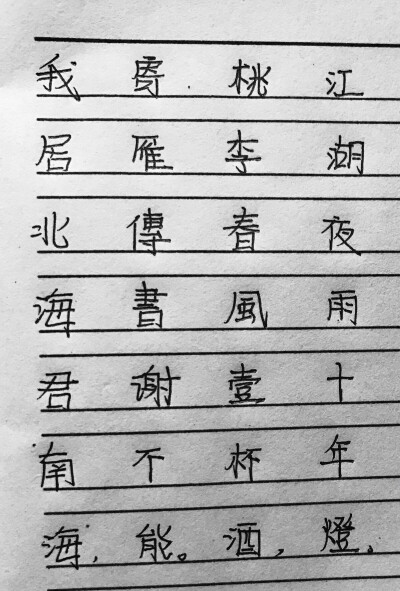 我居北海君南海,
寄雁傳書谢不能。
桃李春風壹杯酒,
江湖夜雨十年燈。